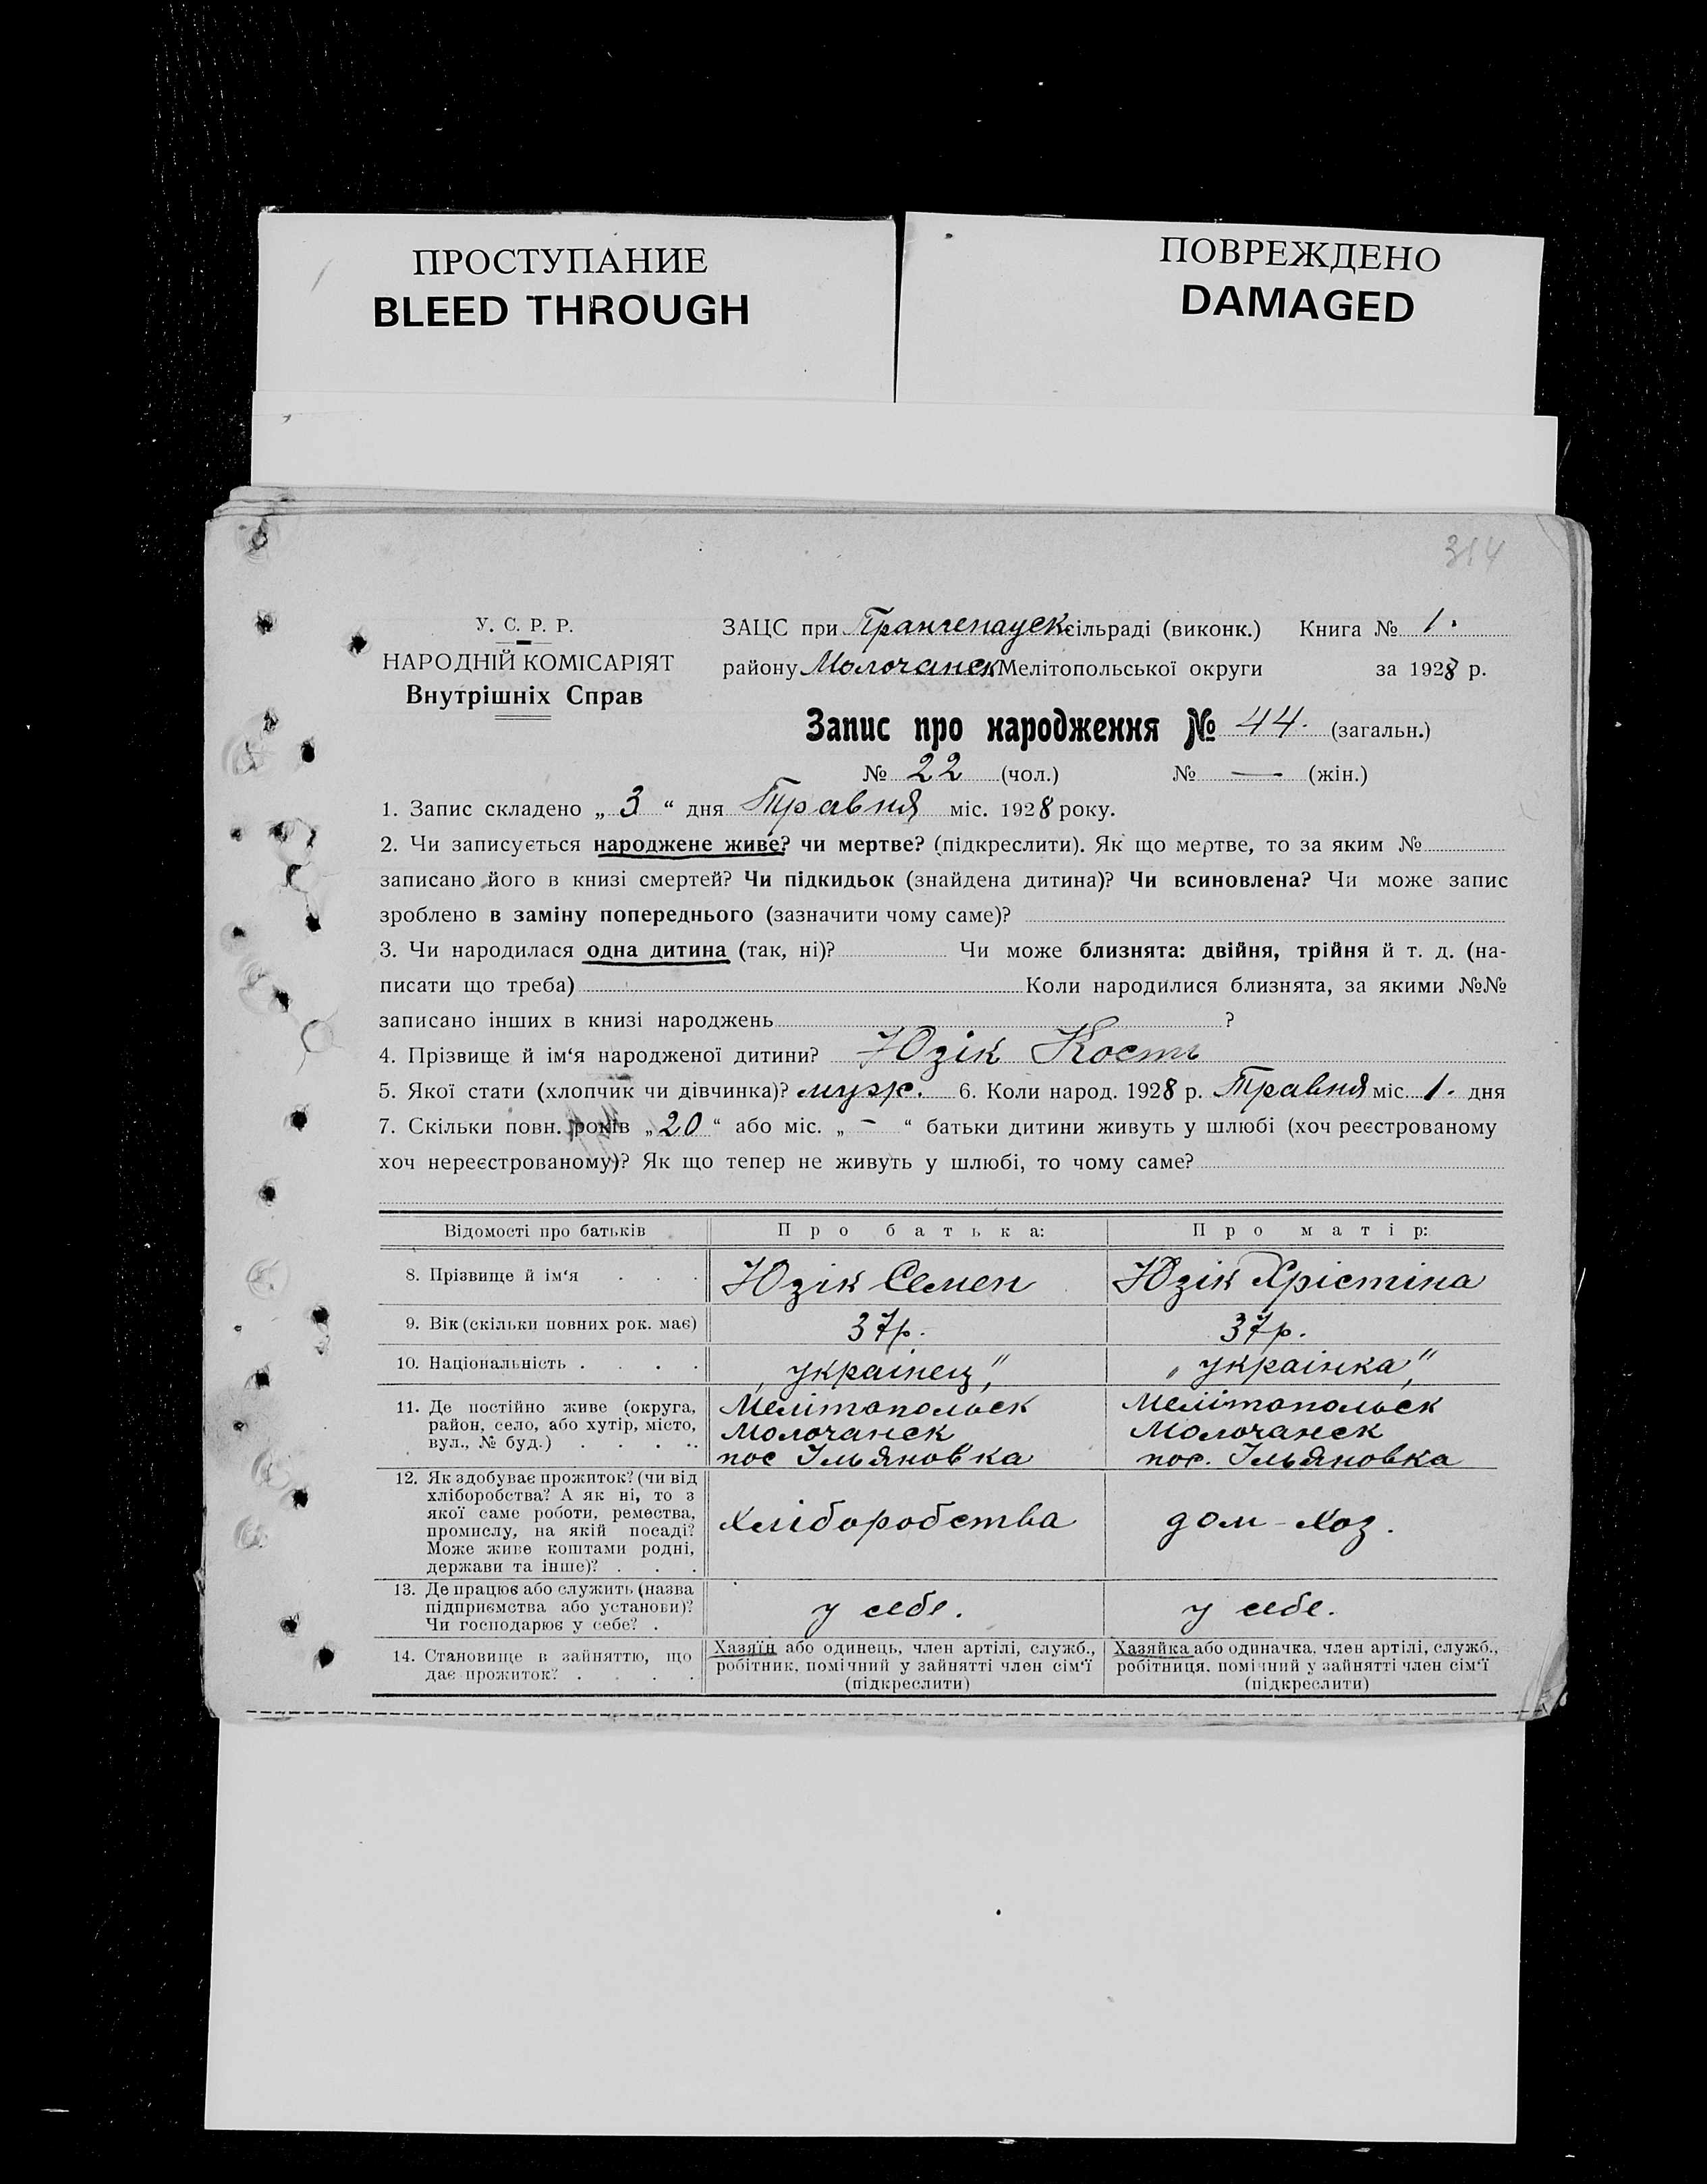 ПРОСТУПАНИЕ
BLEED THROUGH
ПОВРЕЖДЕНО
DAMAGED
314
У. С. Р. Р.
НАРОДНІЙ КОМІСАРІЯТ
Внутрішніх Справ
ЗАЦС при Грангенауск сільраді (виконк.) Книга № 1.
району Молочанск Мелітопольської округи за 1928 р.
Запис про народження № 44. (загальн.)
№ 22 (чол.) № — (жін.)
1. Запис складено „ 3 “ дня Травня міс. 1928 року.
2. Чи записується народжене живе? чи мертве? (підкреслити). Як що мертве, то за яким №
записано його в книзі смертей? Чи підкидьок (знайдена дитина)? Чи всиновлена? Чи може запис
зроблено в заміну попереднього (зазначити чому саме)?
3. Чи народилася одна дитина (так, ні)? Чи може близнята: двійня, трійня й т. д. (на-
писати що треба) Коли народилися близнята, за якими №№
записано інших в книзі народжень ?
4. Прізвище й ім‘я народженої дитини? Юзік Кость
5. Якої стати (хлопчик чи дівчинка)? муж. 6. Коли народ. 1928 р. Травня міс. 1. дня
7. Скільки повн. років „ 20 “ або міс. „ – “ батьки дитини живуть у шлюбі (хоч реєстрованому
хоч нереєстрованому)? Як що тепер не живуть у шлюбі, то чому саме?
Відомості про батьків Про батька: Про матір:
8. Прізвище й ім‘я . . . Юзік Семен Юзік Хрістіна
9. Вік (скільки повних рок. має) 37р. 37р.
10. Національність . . . . „українец“ „українка“
11. Де постійно живе (округа, район, село, або хутір, місто, вул., № буд.) . . . .
Мелітопольск
Молочанск
пос Ільяновка
Мелітопольск
Молочанск
пос. Ільяновка
12. Як здобуває прожиток? (чи від
хліборобства? А як ні, то з
якої саме роботи, ремества,
промислу, на якій посаді?
Може живе коштами родні,
держави та інше)? . . .
Хліборобства дом-хоз.
13. Де працює або служить (назва
підприємства або установи)?
Чи господарює у себе? .
у себе. у себе.
14. Становище в зайняттю, що
дає прожиток? . . . .
Хазяїн або одинець, член артілі, служб.,
робітник, помічний у зайнятті член сім‘ї
(підкреслити)
Хазяйка або одиначка, член артілі, служб.,
робітниця, помічний у зайнятті член сім‘ї
(підкреслити)